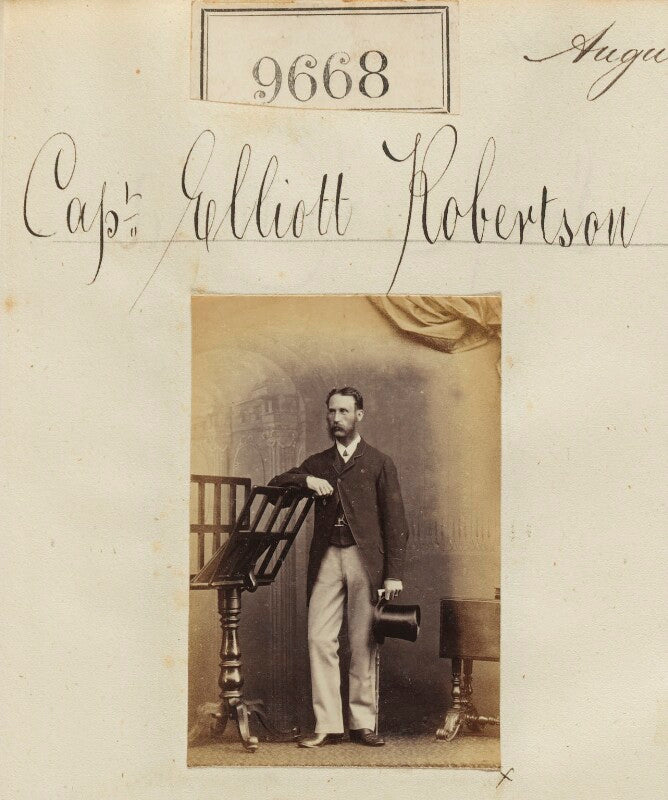 9668
Augu
Capt. Elliott Robertson
x